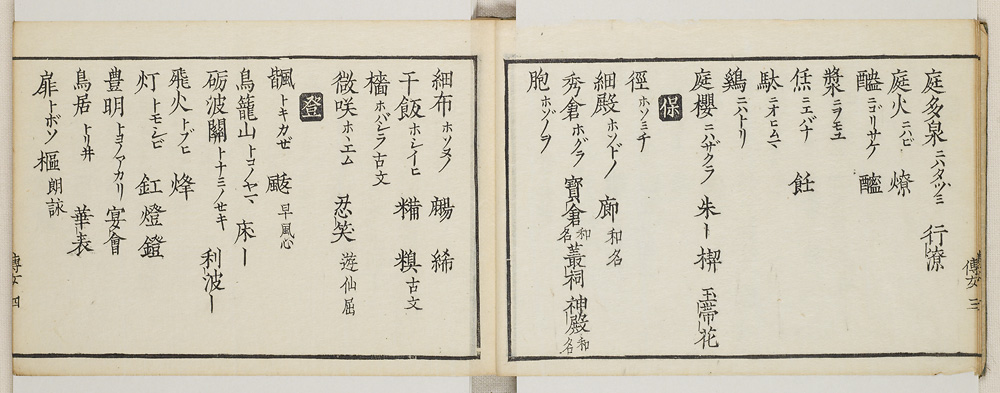 庭多泉 ニハタヅミ 行潦
庭火 ニハビ 燎
醯 ニゴリサケ 醯
漿 ニヲモユ
恁 ニエバナ 飪
駄 ニオヒムマ
鷄 ニハトリ
庭櫻 ニハザクラ 朱ー 楔 玉帶花
保
徑 ホソミチ
細殿 ホソドノ 廊 和名
秀倉 ホグラ 寶倉 和名 叢祠 神殿 和名
胞 ホソノヲ
傳女 三
細布 ホソヌノ 𦀌 絺
干飯 ホシイヒ 糒 糗 古文
檣 ホバシラ 古文
微咲 ホヽエム 忍笑 遊仙屈
登
颽 トキカゼ 颷 早風心
鳥籠山 トコノヤマ 床ー
砺波關 トナミノセキ 利波ー
飛火 トブヒ 烽
灯 トモシビ 釭 燈 鐙
豊明 トヨノアカリ 宴會
鳥居 トリ井 華表
扉 トボソ 樞 朗詠
傳女 四